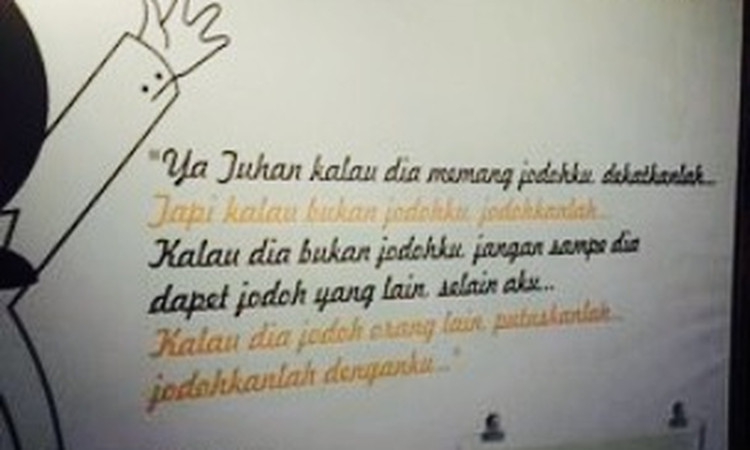 "Ya Tuhan kalau dia memang jodohku, dekatkanlah...
Tapi kalau bukan jodohku, jodohkanlah...
Kalau dia bukan jodohku, jangan sampe dia
dapet jodoh yang lain, selain aku...
Kalau dia jodoh orang lain, putuskanlah...
jodohkanlah denganku..."